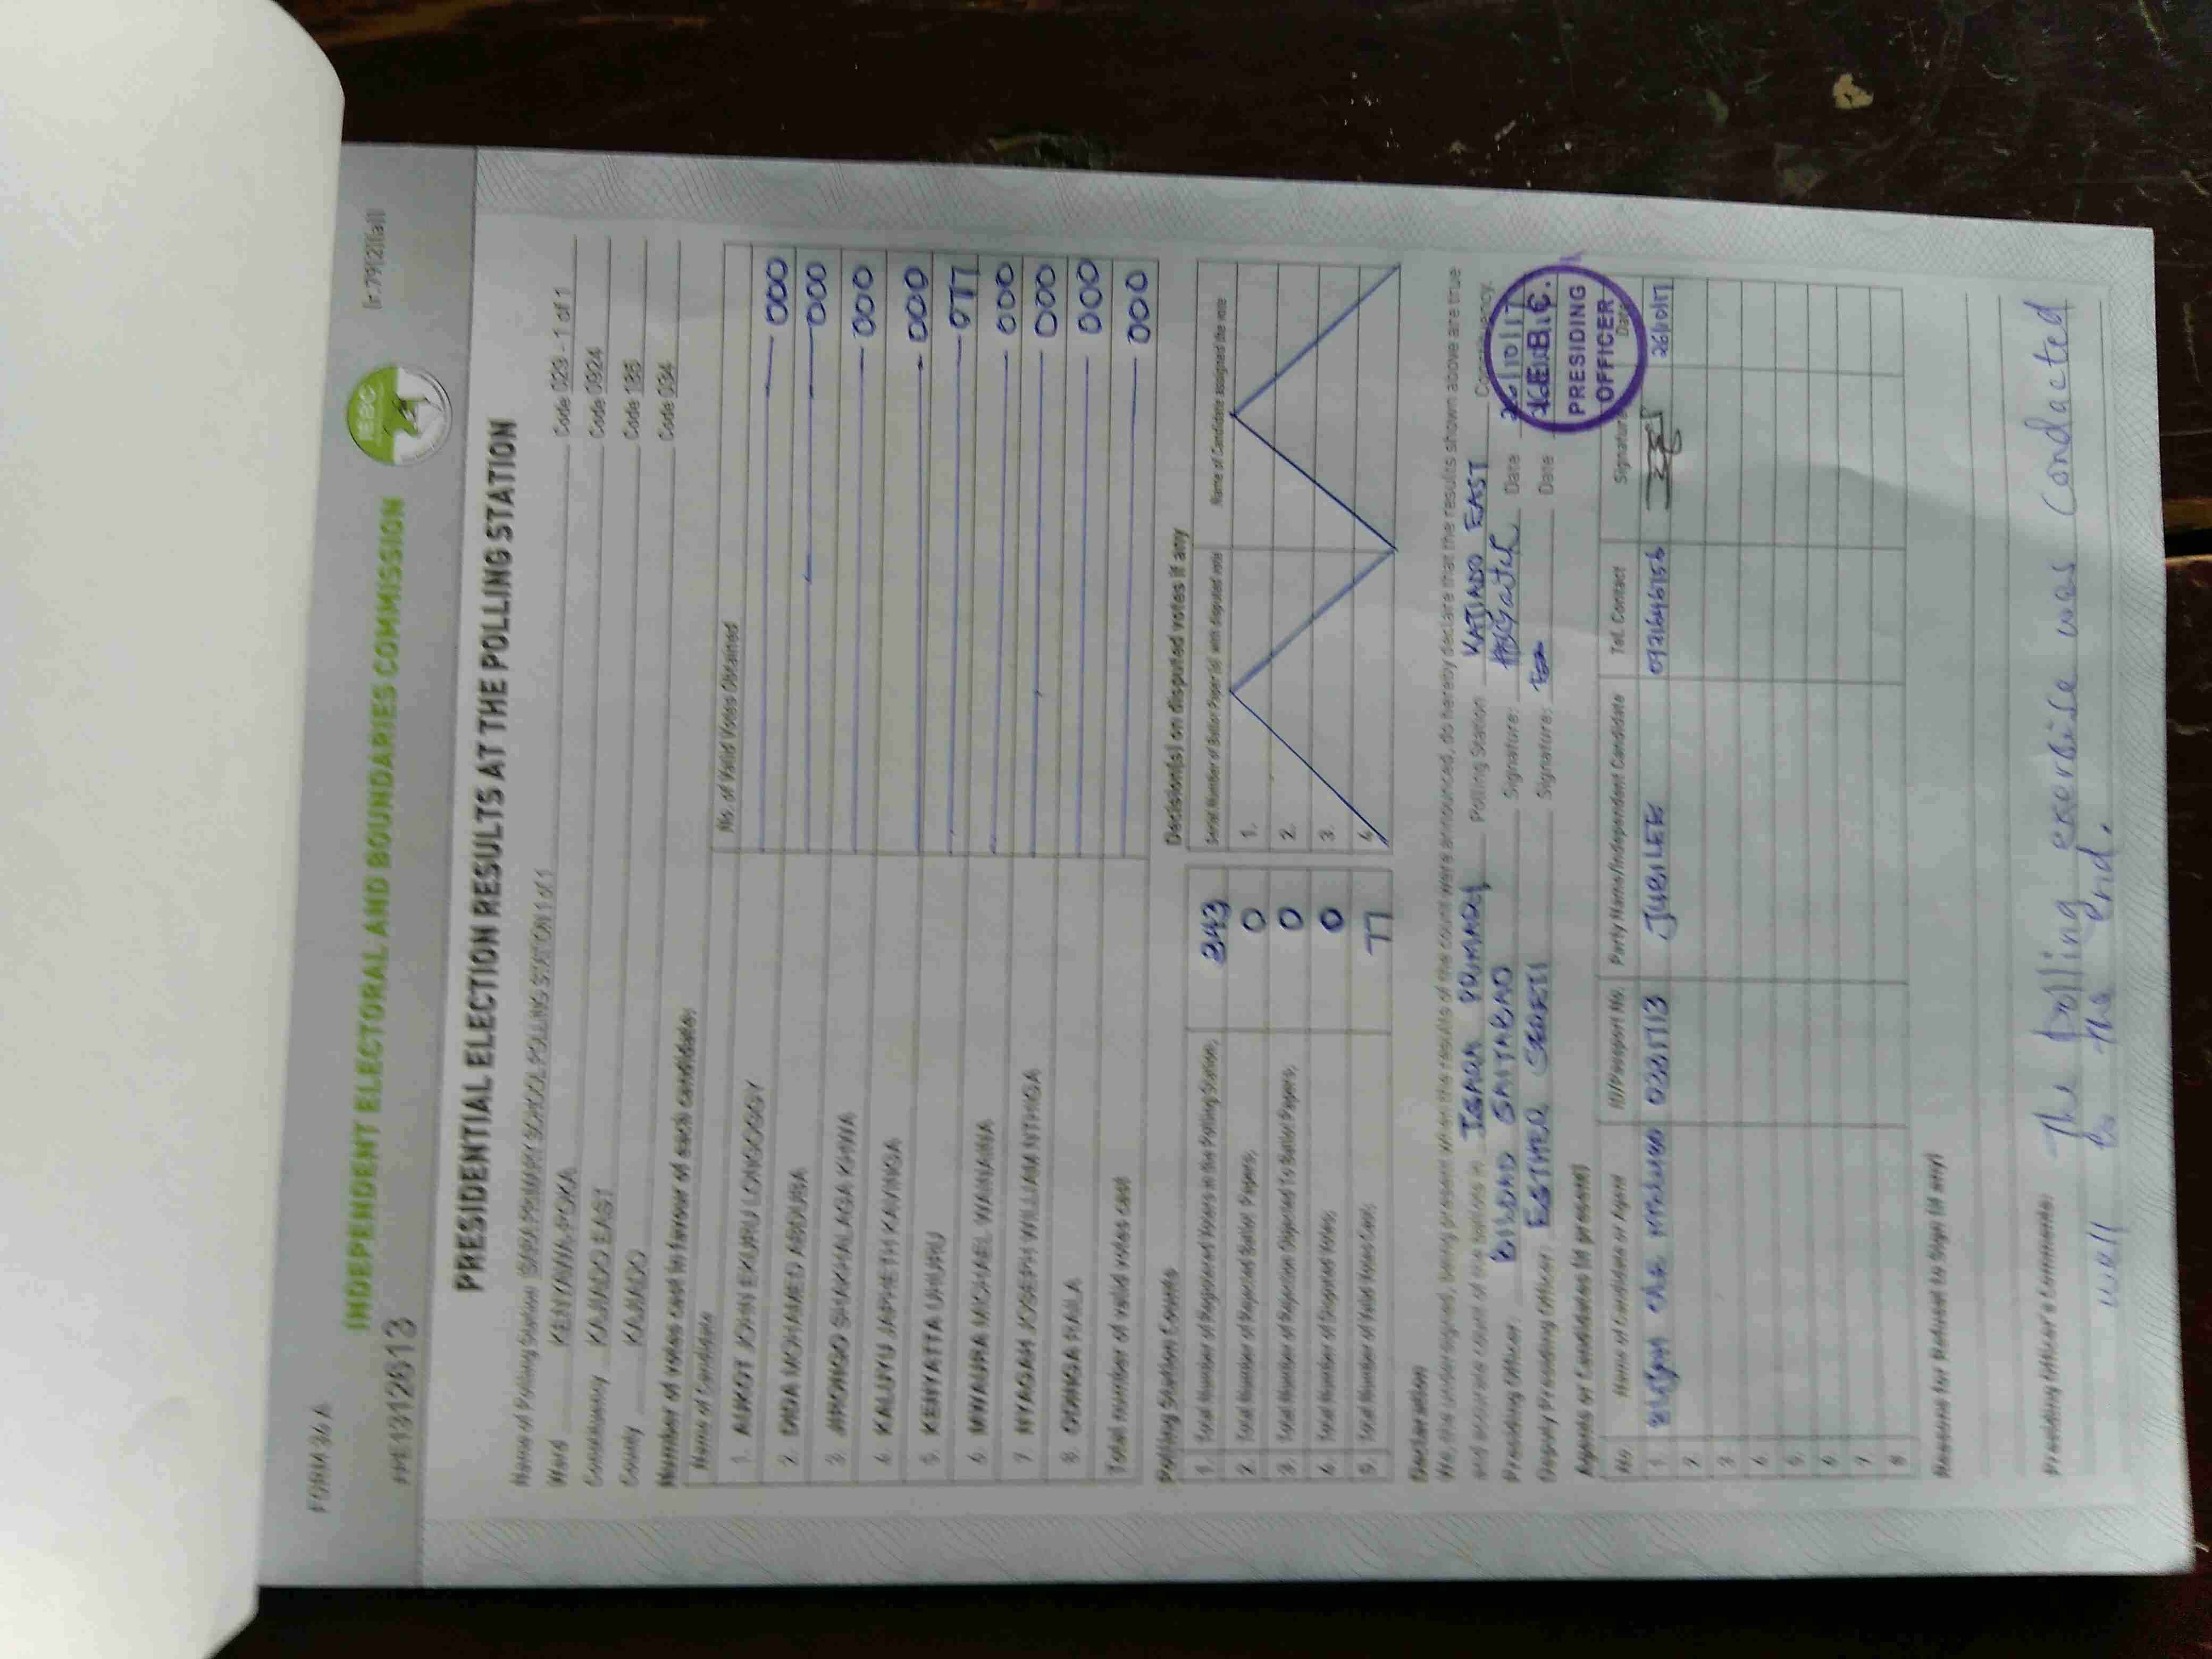 FORM 34A
[r.79(2)(a)]
INDEPENDENT ELECTORAL AND BOUNDARIES COMMISSION
IEBC
PRESIDENTIAL ELECTION RESULTS AT THE POLLING STATION
Name of Polling Station ISARA PRIMARY SCHOOL POLLING STATION 1 of 1 Code 029 - 1 of 1
Ward KENYAWA-POKA Code 0924
Constituency KAJIADO EAST Code 185
County KAJIADO Code 034
Number of votes cast in favour of each candidate:
Name of Candidate No. of Valid Votes Obtained
1. AUKOT JOHN EKURU LONGOGGY 000
2. DIDA MOHAMED ABDUBA 000
3. JIRONGO SHAKHALAGA KHWA 000
4. KALUYU JAPHETH KAVINGA 000
5. KENYATTA UHURU 077
6. MWAURA MICHAEL WAINAINA 000
7. NYAGAH JOSEPH WILLIAM NTHIGA 000
8. ODINGA RAILA 000
Total number of valid votes cast 000
Polling Station Counts
1. Total Number of Registered Voters in the Polling Station; 243
2. Total Number of Rejected Ballot Papers; 0
3. Total Number of Rejection Objected To Ballot Papers; 0
4. Total Number of Disputed Votes; 0
5. Total Number of Valid Votes Cast; 77
Decision(s) on disputed votes if any
Serial Number of Ballot Paper(s) with disputed vote Name of Candidate assigned the vote
1.
2.
3.
4.
Declaration
We, the undersigned, being present when the results of the count were announced, do hereby declare that the results shown above are true
and accurate count of the ballots in ISARA PRIMARY Polling Station KAJIADO EAST Constituency.
Presiding Officer: BILDAD SAITABAO Signature: Date 26/10/17
Deputy Presiding Officer: ESTHER Signature: Date
I.E.B.C.
PRESIDING
OFFICER
Agents or Candidates (if present)
No Name of Candidate or Agent ID/Passport No. Party Name/Independent Candidate Tel. Contact Signature Date
1. JUBILEE 26/10/17
2.
3.
4.
5.
6.
7.
8
Reasons for Refusal to Sign (if any)
Presiding Officer's Comments: The polling exercise was Conducted
well to the end.